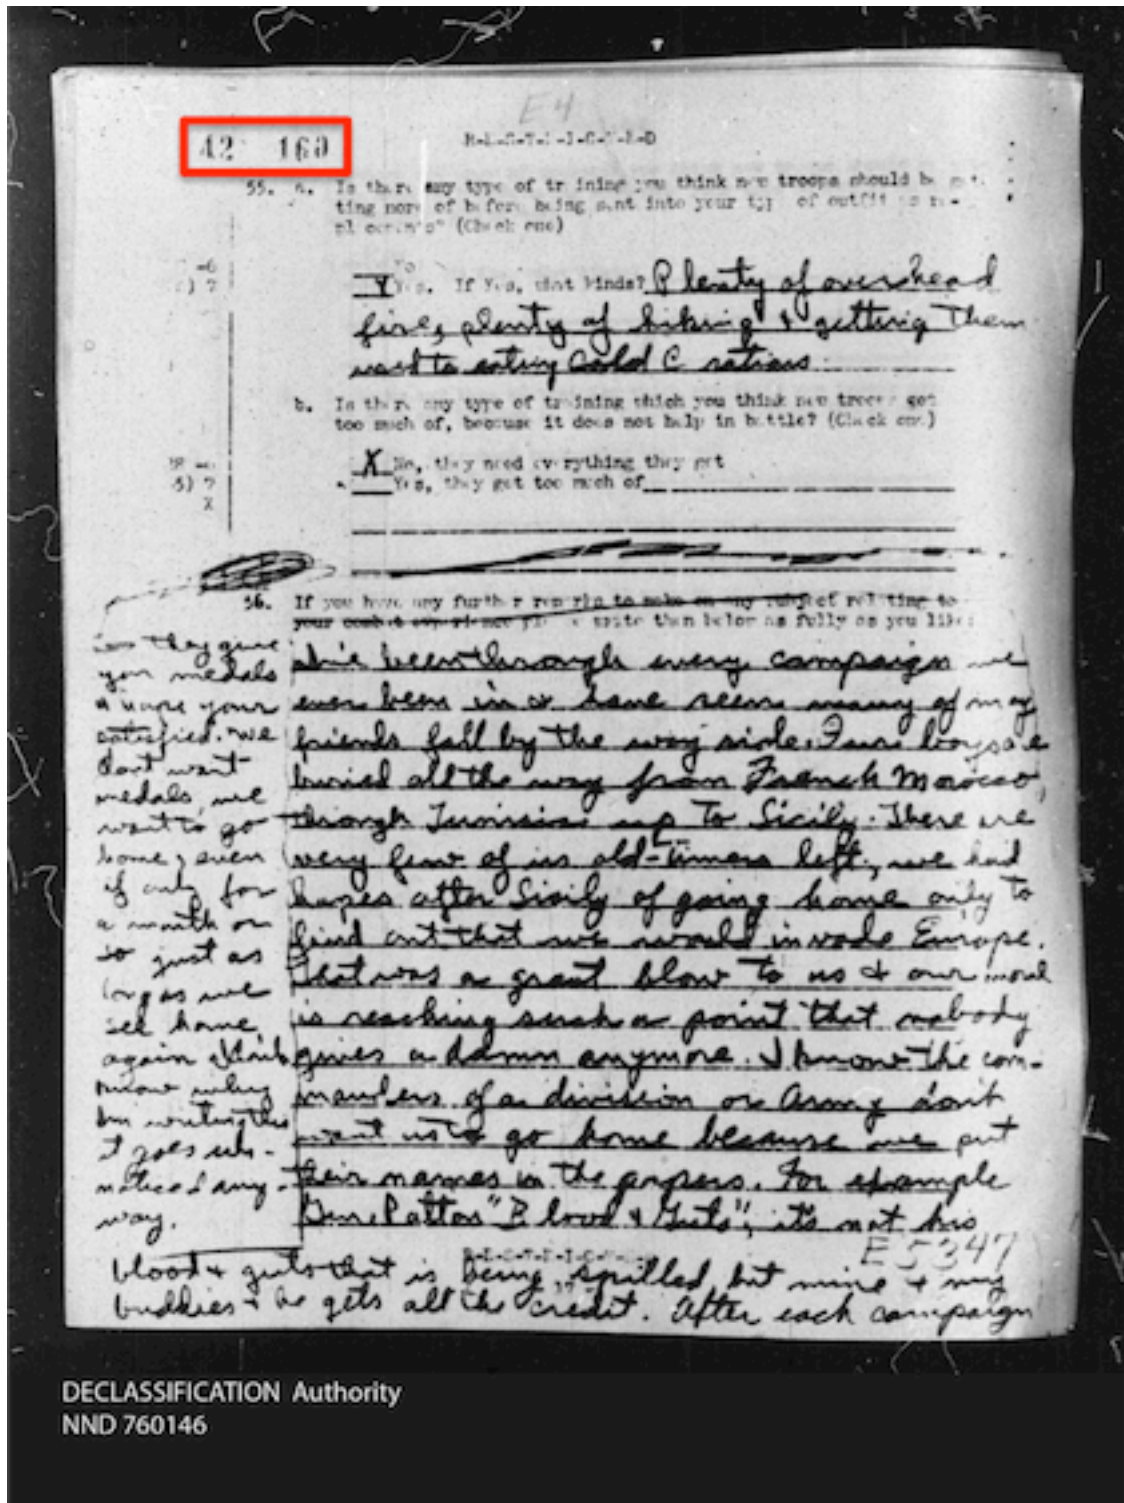 E4
42 160
R-E-S-T-R-I-C-T-E-D
55. a. Is there any type of training you think new troops should be get-
ting more of before being sent into your type of outfit as re-
placements? (Check one)
-6
) 7
No
X Yes. If Yes, what kinds? Plenty of overhead
fire, plenty of hiking & getting them
used to eating cold C rations.
b. Is there any type of training which you think new troops get
too much of, because it does not help in battle? (Check one)
X No, they need everything they get
Yes, they get too much of
8) 7
X
56. If you have any further remarks to make on any subject relating to
your combat experience please write them below as fully as you like:
I've been through every campaign we
ever been in & have seen many of my
friends fall by the way side. Four boys are
buried all the way from French Morocco,
through Tunisia up to Sicily. There are
very few of us old-timers left, we had
hopes after Sicily of going home only to
find out that we would invade Europe.
That was a great blow to us & our moral
is reaching such a point that nobody
gives a damn anymore. I know the com-
manders of a division or Army don't
want us to go home because we put
their names in the papers. For example
Gen. Patton "Blood & Guts", it's not his
E5347
R-E-S-T-R-I-C-
blood & guts that is being spilled, but mine & my
buddies & he gets all the credit. After each campaign
they give
you medals
& hope your
satisfied. We
dont want
medals, we
want to go
home, even
if only for
a month or
so just as
long as we
see home
again I don't
know why
Im writing this
it goes un-
noticed any-
way.
DECLASSIFICATION Authority
NND 760146